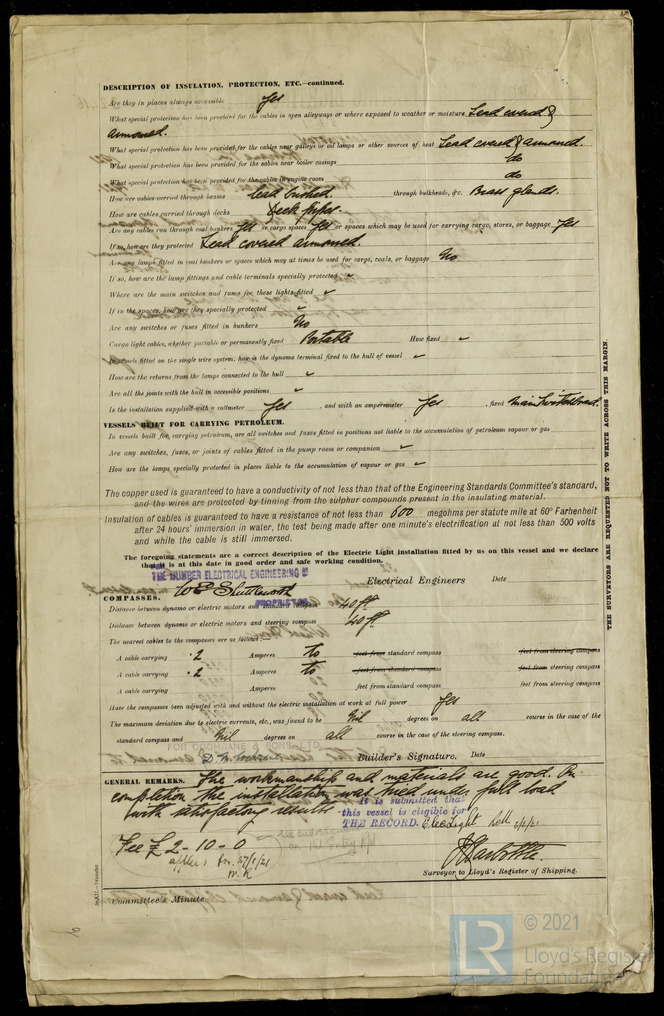 DESCRIPTION OF INSULATION, PROTECTION, ETC.—continued.
Are they in places always accessible Yes
What special protection has been provided for the cables in open alleyways or where exposed to weather or moisture Lead covered &
armoured.
What special protection has been provided for the cables near galleys or oil lamps or other sources of heat Lead covered & armoured.
What special protection has been provided for the cables near boiler casings do
What special protection has been provided for the cables in engine room do
How are cables carried through beams lead bushed. through bulkheads, &c. Brass glands.
How are cables carried through decks Deck pipes.
Are any cables run through coal bunkers Yes or cargo spaces Yes or spaces which may be used for carrying cargo, stores, or baggage Yes
If so, how are they protected Lead covered armoured.
Are any lamps fitted in coal bunkers or spaces which may at times be used for cargo, coals, or baggage No
If so, how are the lamp fittings and cable terminals specially protected ✓
Where are the main switches and fuses for these lights fitted ✓
If in the spaces, how are they specially protected ✓
Are any switches or fuses fitted in bunkers No
Cargo light cables, whether portable or permanently fixed Portable How fixed ✓
In vessels fitted on the single wire system, how is the dynamo terminal fixed to the hull of vessel ✓
How are the returns from the lamps connected to the hull ✓
Are all the joints with the hull in accessible positions ✓
Is the installation supplied with a voltmeter Yes , and with an amperemeter Yes , fixed Main Switchboard.
VESSELS BUILT FOR CARRYING PETROLEUM.
In vessels built for carrying petroleum, are all switches and fuses fitted in positions not liable to the accumulation of petroleum vapour or gas
Are any switches, fuses, or joints of cables fitted in the pump room or companion ✓
How are the lamps specially protected in places liable to the accumulation of vapour or gas ✓
The copper used is guaranteed to have a conductivity of not less than that of the Engineering Standards Committee's standard,
and the wires are protected by tinning from the sulphur compounds present in the insulating material.
Insulation of cables is guaranteed to have a resistance of not less than 600 megohms per statute mile at 60° Farhenheit
after 24 hours' immersion in water, the test being made after one minute's electrification at not less than 500 volts
and while the cable is still immersed.
The foregoing statements are a correct description of the Electric Light installation fitted by us on this vessel and we declare
that it is at this date in good order and safe working condition.
THE HUMBER ELECTRICAL ENGINEERING Co
W E Shuttleworth Electrical Engineers Date
COMPASSES.
Distance between dynamo or electric motors and standard compass 40 ft.
Distance between dynamo or electric motors and steering compass 40 ft.
The nearest cables to the compasses are as follows:—
A cable carrying .2 Amperes to feet from standard compass feet from steering compass
A cable carrying .2 Amperes to feet from standard compass feet from steering compass
A cable carrying Amperes feet from standard compass feet from steering compass
Have the compasses been adjusted with and without the electric installation at work at full power Yes
The maximum deviation due to electric currents, etc., was found to be Nil degrees on all course in the case of the
standard compass and Nil degrees on all course in the case of the steering compass.
& SONS, LTD.
Builder's Signature. Date
GENERAL REMARKS. The workmanship and materials are good. On
completion the installation was tried under full load
with satisfactory results
It is submitted that
this vessel is eligible for
THE RECORD. Elec Light
Fee £2-10-0
Surveyor to Lloyd's Register of Shipping.
Committee's Minute
THE SURVEYORS ARE REQUESTED NOT TO WRITE ACROSS THIS MARGIN.
© 2021
Lloyd's Register
Foundation